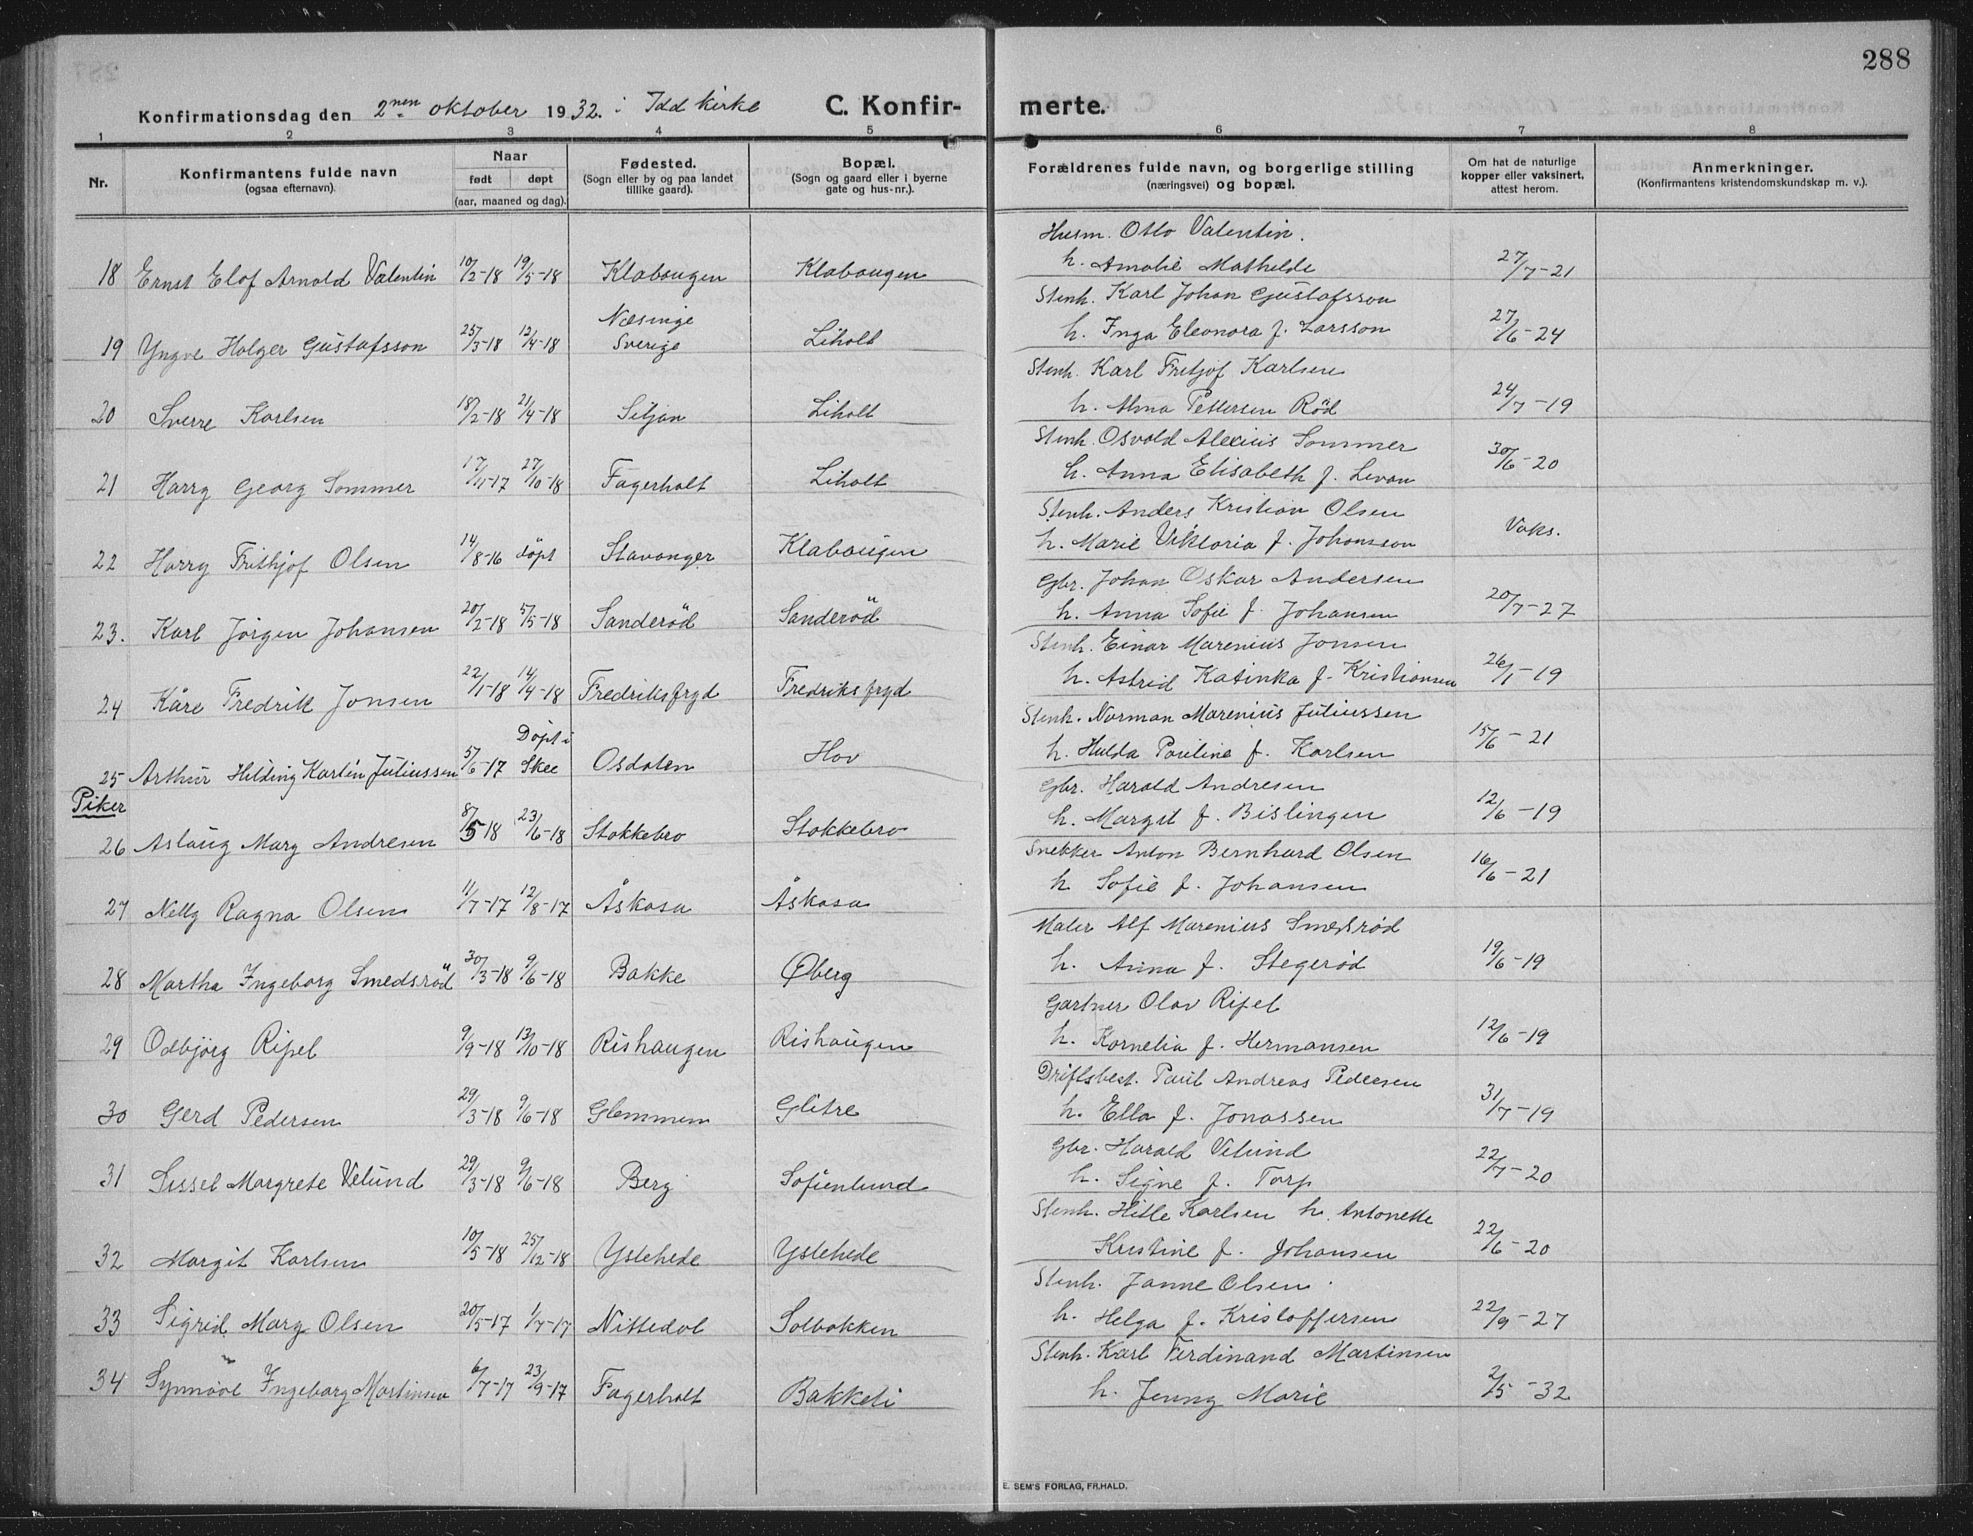 288
Konfirmationsdag den 2nen oktober 1932. i Idd kirke C. Konfir- merte.
1 2 3 4 5 6 7 8
Nr. Konfirmantens fulde navn (ogsaa efternavn). Naar født døpt (aar, maaned og dag). Fødested. (Sogn eller by og paa landet tillike gaard). Bopæl. (Sogn og gaard eller i byerne gate og hus-nr.). Forældrenes fulde navn, og borgerlige stilling (næringsvei) og bopæl. Om hat de naturlige kopper eller vaksinert, attest herom. Anmerkninger. (Konfirmantens kristendomskundskap m. v.).
Husm. Otto Valentin.
18 Ernst Elof Arnold Valentin 10/2-18 19/5-18 Klabaugen Klabaugen h. Amalie Mathilde 27/7-21
Stenh. Karl Johan Gustafsson
19 Yngve Holger Gustafsson 25/3-18 12/4-18 Næsinge Sverige Liholt h. Inga Eleonora f. Larsson 27/6-24
Stenh. Karl Fritjof Karlsen
20 Sverre Karlsen 18/2-18 21/4-18 Siljan Liholt h. Alma Pettersen Rød 24/7-19
Stenh. Osvald Alexius Sommer
21 Harry Georg Sommer 17/11-17 27/10-18 Fagerholt Liholt h. Anna Elisabeth f. Levan 30/6-20
Stenh. Anders Kristian Olsen
22 Harry Frithjof Olsen 14/8-16 døpt Stavanger Klabaugen h. Marie Viktoria f. Johansson Vaks.
Gbr. Johan Oskar Andersen
23. Karl Jørgen Johansen 20/2-18 5/5-18 Sanderød Sanderød h. Anna Sofie f. Johansen 20/7-27
Stenh. Einar Marenius Jonsen
24 Kåre Fredrik Jonsen 22/1-18 14/4-18 Fredriksfryd Fredriksfryd h. Astrid Katinka f. Kristiansen 26/1-19
Stenh. Norman Marenius Juliussen
25 Arthur Hilding Karten Juliussen 5/6-17 Døpt i Skee Osdalen Hov h. Hulda Pauline f. Karlsen 15/6-21
Piker
Gbr. Harald Andresen
26 Aslaug Mary Andresen 8/5-18 23/6-18 Stokkebro Stokkebro h. Margit f. Bislingen 12/6-19
Snekker Anton Bernhard Olsen
27 Nelly Ragna Olsen 11/7-17 12/8-17 Åskasa Åskasa h. Sofie f. Johansen 16/6-21
Maler Alf Marenius Smedsrød
28 Martha Ingeborg Smedsrød 30/3-18 9/6-18 Bakke Øberg h. Anna f. Stegerød 19/6-19
Gartner Olav Ripel
29 Odbjörg Ripel 9/9-18 13/10-18 Rishaugen Rishaugen h. Kornelia f. Hermansen 12/6-19
Driftsbest. Paul Andreas Pedersen
30 Gerd Pedersen 29/3-18 9/6-18 Glemmen Glitre h. Ella f. Jonassen 31/7-19
Gbr. Harald Velund
31 Sissel Margrete Velund 29/3-18 9/6-18 Berg Sofienlund h. Signe f. Torp 22/7-20
Stenh. Hille Karlsen h. Antonette
32 Margit Karlsen 10/5-18 25/12-18 Ystehede Ystehede Kristine f. Johansen 22/6-20
Stenh. Janne Olsen
33 Sigrid Mary Olsen 20/5-17 1/7-17 Nittedal Solbakken h. Helga f. Kristoffersen 22/9-27
Stenh. Karl Ferdinand Martinsen
34 Synnöve Ingeborg Martinsen 6/7-17 23/9-17 Fagerholt Bakkeli h. Jenny Marie 2/5-32
E. SEM'S FORLAG, FR.HALD.